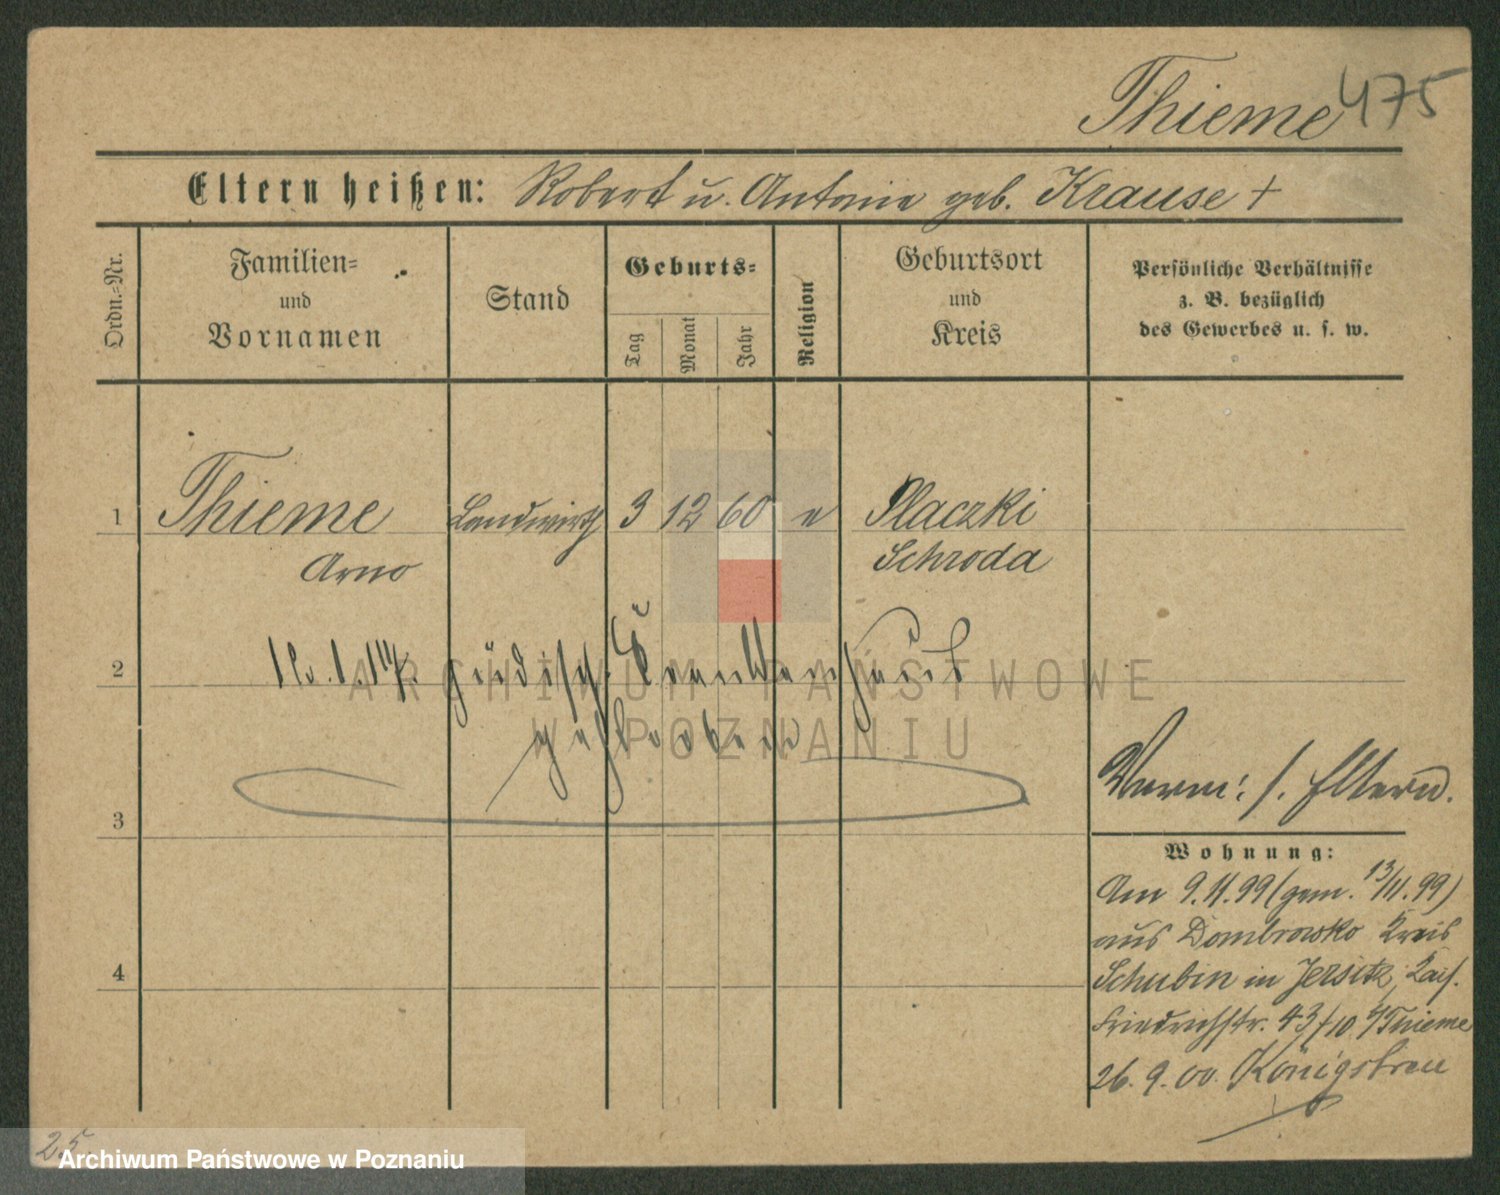 Thieme 475
Eltern heißen: Robert u. Antonie geb. Krause +
Ordn.-Nr.
Familien-
und
Vornamen
Stand
Geburts-
Tag
Monat
Jahr
Religion
Geburtsort
und
Kreis
Persönliche Verhältnisse
z. B. bezüglich
des Gewerbes u. s. w.
1 Thieme Landwirth 3 12 60 e Placzki
Arno Schroda
2 jüdisch. Krankenhaus
gestorben
3
Verm: s. Eltern.
Wohnung:
Am 9.11.99 (gem. 13/11.99)
aus Dombrowko Kreis
4
Schubin in Jersitz, Kais.
Friedrichstr. 43/10 b/Thieme
26.9.00. Königstreu
25.
ARCHIWUM PAŃSTWOWE
W POZNANIU
Archiwum Państwowe w Poznaniu